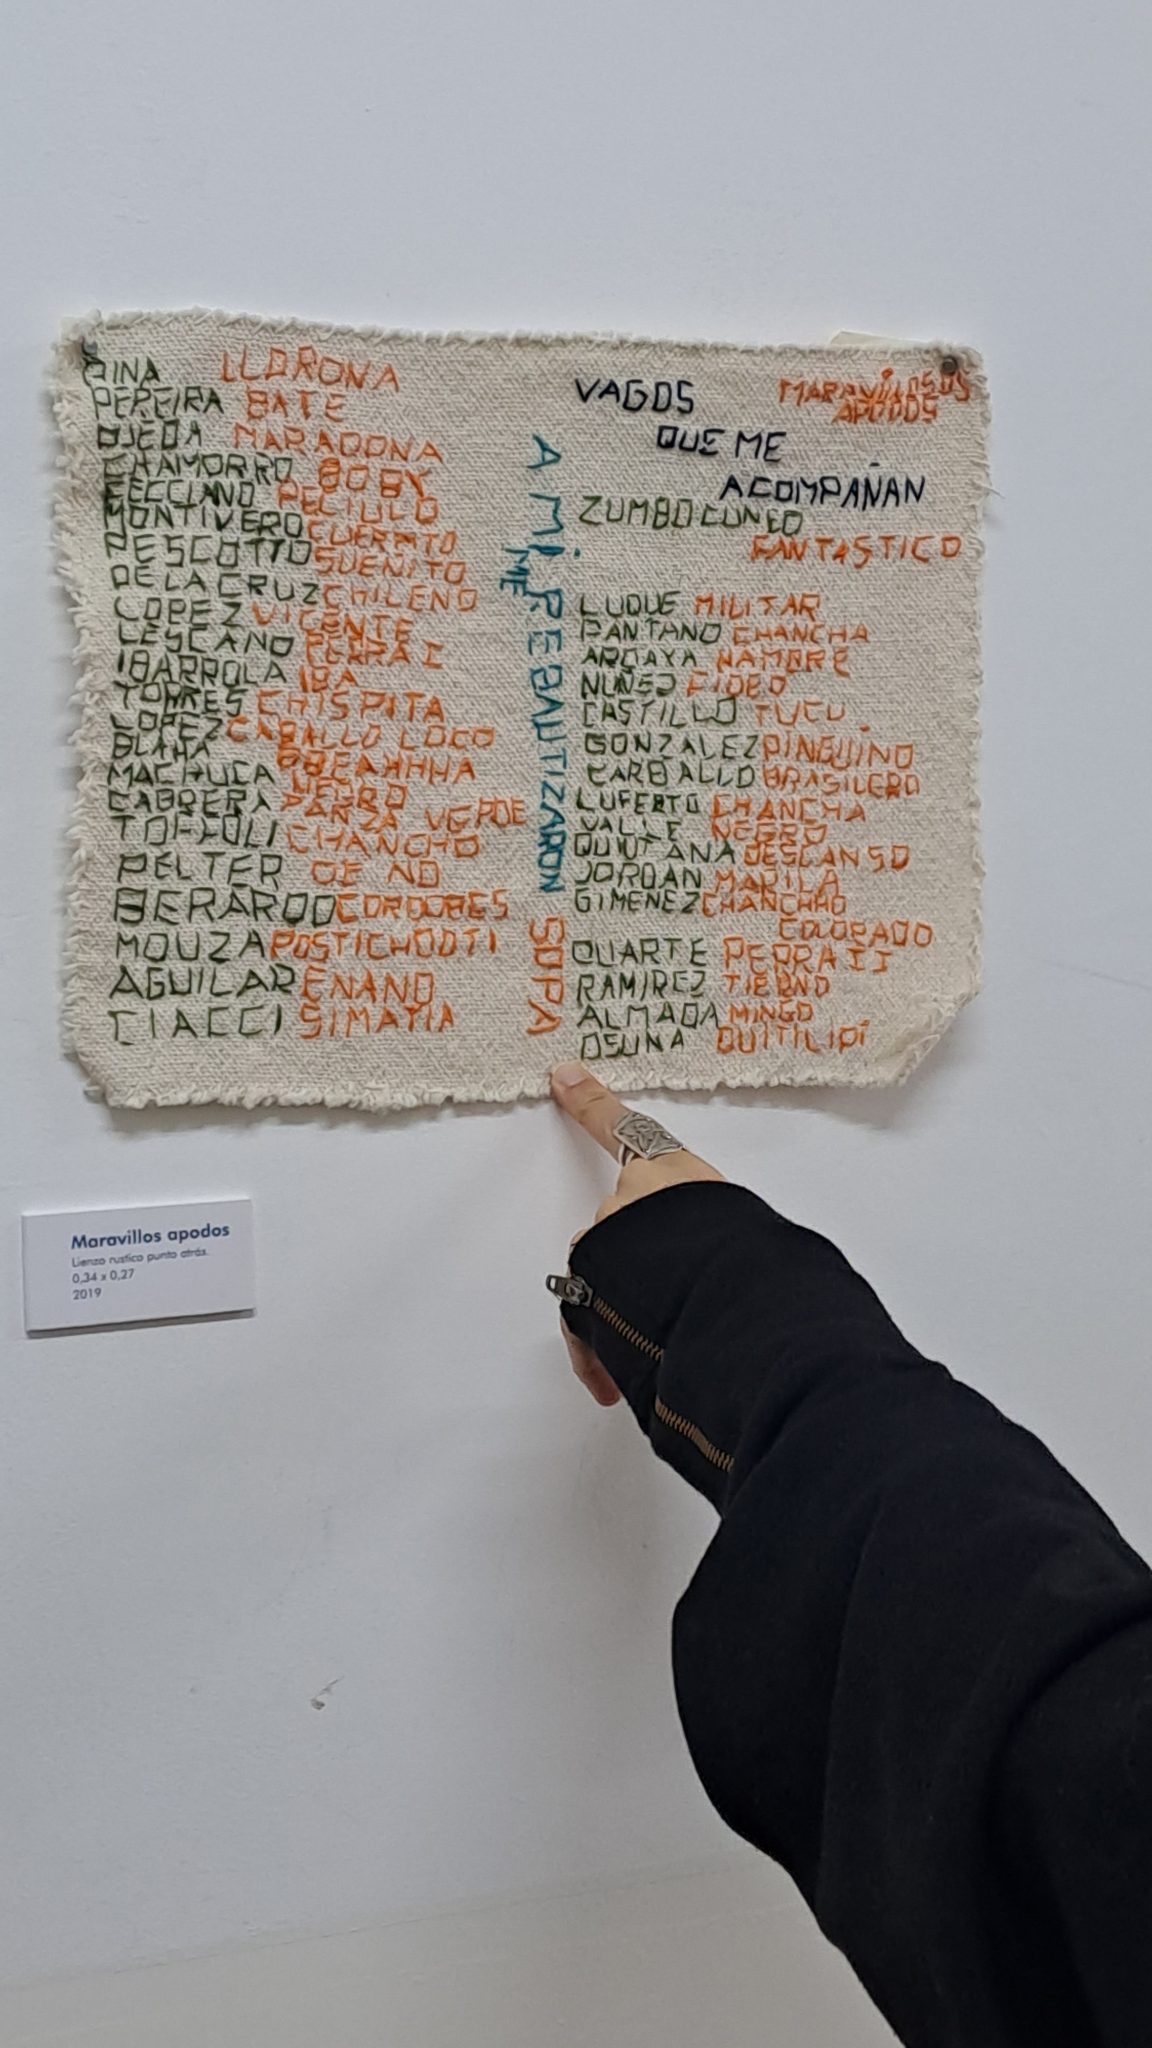 PINA LLORONA
PEREIRA BATE
OJEDA MARADONA
CHAMORRO BOBY
FECCIANO PELIULO
MONTIVERO CUERVITO
PESCOTTO SUEÑITO
DE LA CRUZ CHILENO
LOPEZ VICENTE
LESCANO PERRA I
IBARROLA IBA
TORRES CHISPITA
LOPEZ CABALLO LOCO
BLAHA
MACHUCA NEGRO
CABRERA PANZA VERDE
TOFFOLI CHANCHO
PELTER DE NO
BERARDO CORDOBES
MOUZA POSTICHOOTI
AGUILAR ENANO
CIACCI SIMATIA
A MI ME REBAUTIZARON SOPA
VAGOS
QUE ME
ACOMPAÑAN
MARAVILLOSOS
APODOS
ZUMBO CUNEO
FANTASTICO
LUQUE MILITAR
PANTANO CHANCHA
ARGAYA HAMBRE
NUÑEZ FIDEO
CASTILLO TUCU
GONZALEZ PINGUINO
CARBALLO BRASILERO
LUFERTO CHANCHA
VALLE NEGRO
QUINTANA DESCANSO
JORDAN MARILA
GIMENEZ CHANCHO
COLORADO
DUARTE PERRA II
RAMIREZ TIERNO
ALMADA MINGO
OSUNA QUITILIPI
Maravillos apodos
Lienzo rustico punto atrás.
0,34 x 0,27
2019